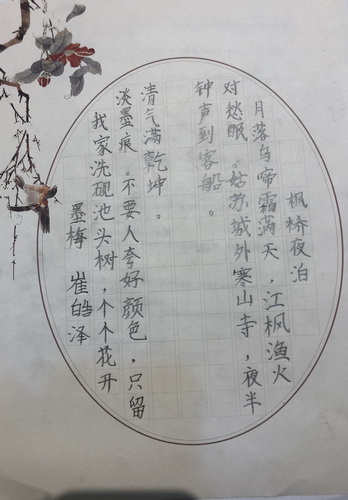 枫桥夜泊
月落乌啼霜满天，江枫渔火
对愁眠。姑苏城外寒山寺，夜半
钟声到客船。
墨梅 崔皓泽
我家洗砚池头树，个个花开
淡墨痕。不要人夸好颜色，只留
清气满乾坤。